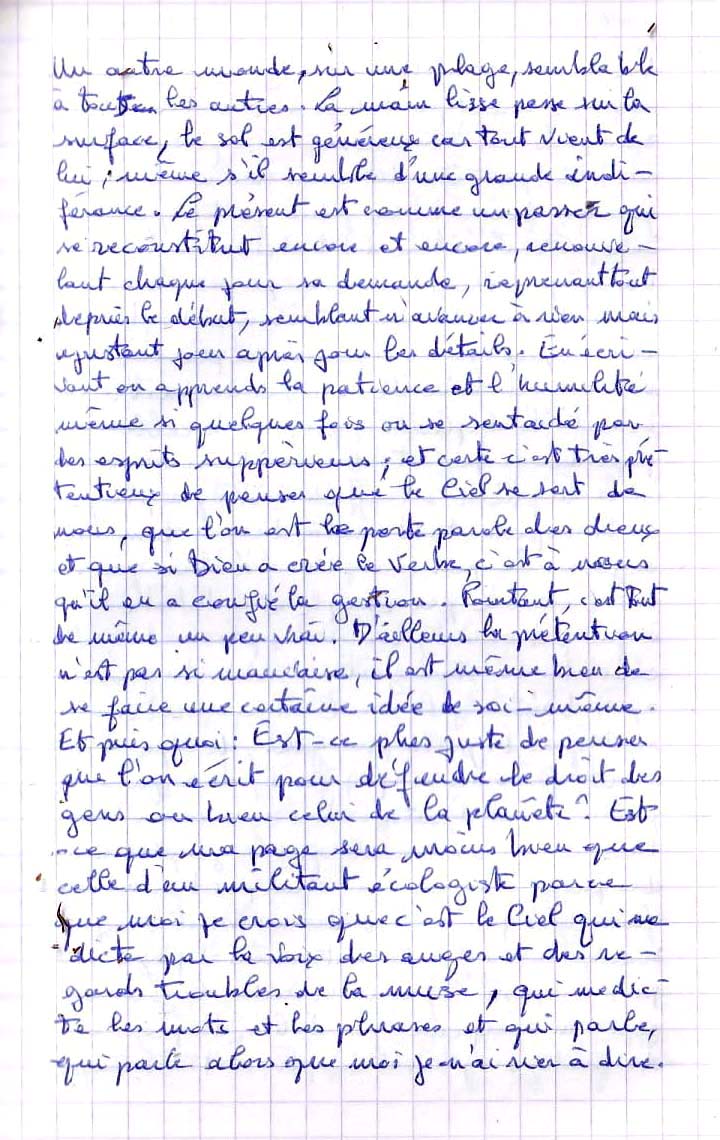 Un autre monde, sur une plage, semblable
à toutes les autres. La main lisse passe sur la
surface, le sol est généreux car tout vient de
lui, même s'il semble d'une grande indi-
férance. Le présent est comme un passer qui
se reconstitut encore et encore, renouve-
lant chaque jour sa demande, reprenant tout
depuis le début, semblant n'avancer à rien mais
ajustant jour après jour les détails. En écri-
vant on apprends la patience et l'humilité
même si quelques fois on se sent aidé par
des esprits suppèrieurs ; et certe c'est très pré-
tentieux de penser que le Ciel se sert de
nous, que l'on est le porte parole des dieux
et que si Dieu a crée le Verbe, c'est à nous
qu'il en a confié la gestion. Pourtant, c'est tout
de même un peu vrai. D'ailleurs la prétention
n'est pas si mauvaise, il est même bien de
se faire une certaine idée de soi-même.
Et puis quoi : Est-ce plus juste de penser
que l'on écrit pour défendre le droit des
gens ou bien celui de la planète ? Est
-ce que ma page sera moins bien que
celle d'un militant écologiste parce
que moi je crois que c'est le Ciel qui me
dicte par la voix des anges et des re-
gards troubles de la muse, qui me dic-
te les mots et les phrases et qui parle,
qui parle alors que moi je n'ai rien à dire.